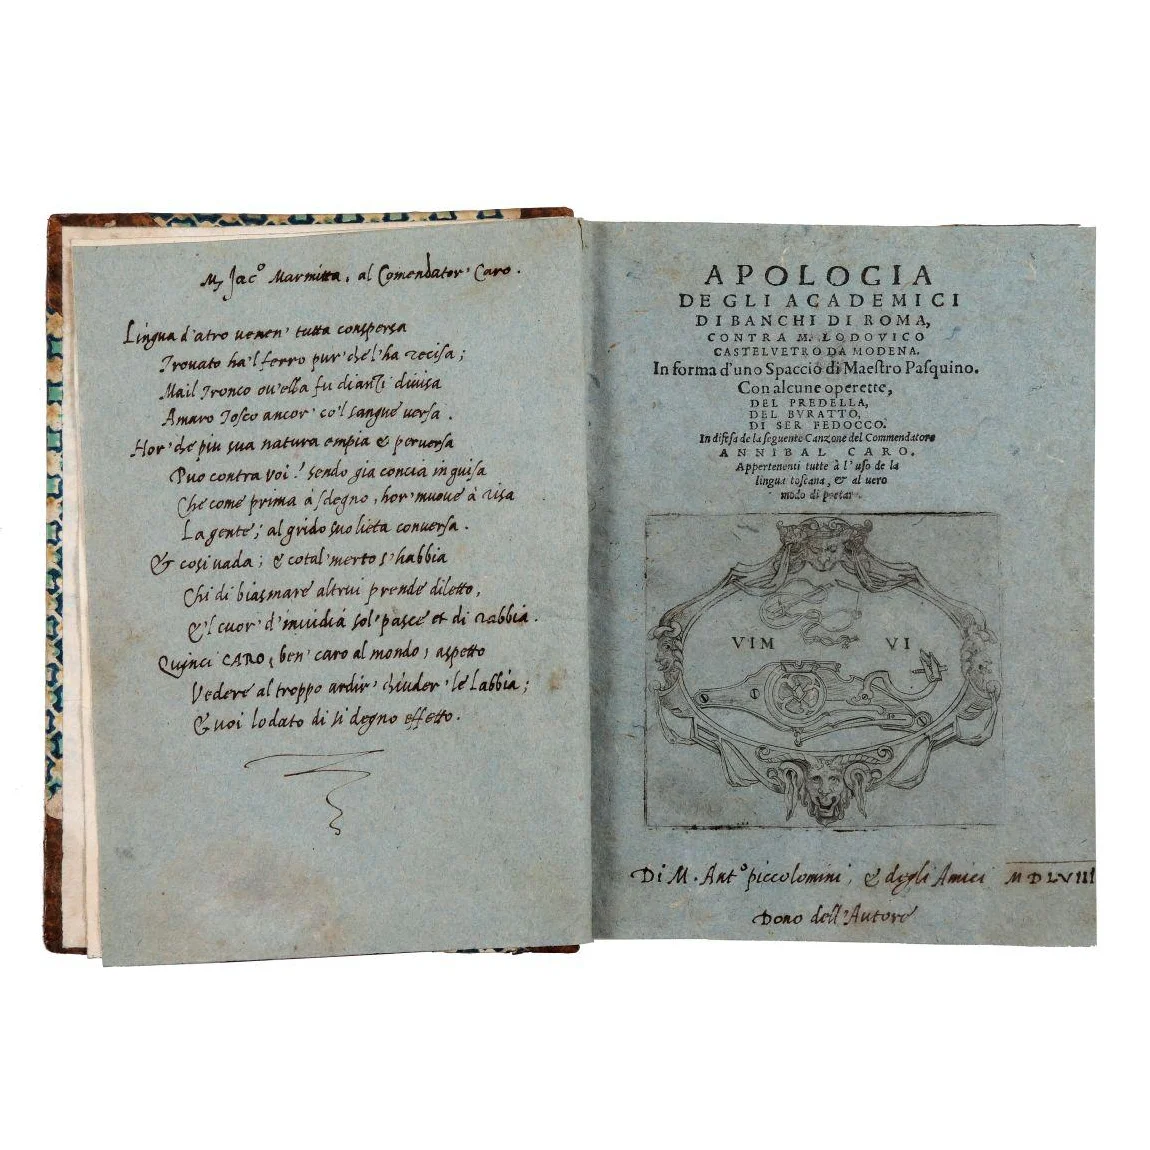 M. Jac.º Marmitta, al Comendator' Caro.
Lingua d'atro venen' tutta conspersa
Trovato ha'l ferro pur' che l'ha recisa;
Ma il Tronco ov'ella fu dianzi divisa
Amaro Tosco ancor' co'l sangue versa.
Hor' che piu sua natura empia & perversa
Puo contra voi? sendo gia concia in guisa
Che come prima à sdegno, hor' muove à risa
La gente; al grido suo lieta conversa.
& cosi vada; e cotal' merto s'habbia
Chi di biasmare altrui prende diletto,
E'l cuor' d'invidia sol' pasce et di rabbia.
Quinci CARO, ben' caro al mondo, aspetto
Vedere al troppo ardir' chiuder' le labbia;
E voi lodato di si degno effetto.
APOLOGIA
DEGLI ACADEMICI
DI BANCHI DI ROMA,
CONTRA M. LODOVICO
CASTELVETRO DA MODENA.
In forma d'uno Spaccio di Maestro Pasquino.
Con alcune operette,
DEL PREDELLA,
DEL BVRATTO,
DI SER FEDOCCO.
In difesa de la seguente Canzone del Commendatore
ANNIBAL CARO.
Appertenenti tutte à l'uso de la
lingua toscana, & al uero
modo di poetare.
VIM VI
Di M. Antº piccolomini, & degli Amici MDLVIII
Dono dell'Autore